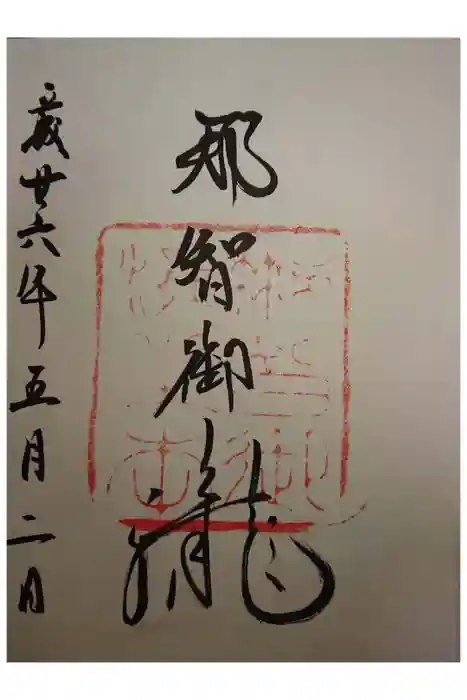 那智御瀧
平成廿六年五月二日